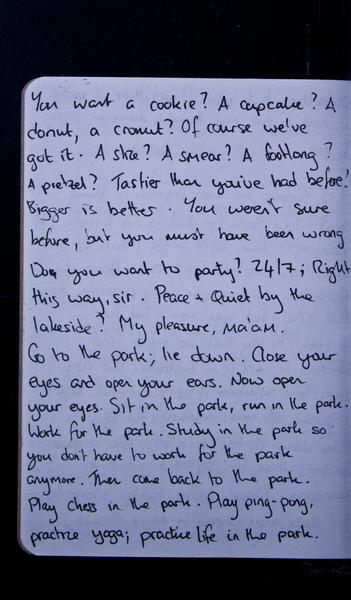 You want a cookie? A cupcake? A
donut, a cronut? Of course we've
got it. A slice? A smear? A footlong?
A pretzel? Tastier than you've had before!
Bigger is better. You weren't sure
before, but you must have been wrong
Do you want to party? 24/7; Right
this way, sir. Peace + Quiet by the
lakeside? My pleasure, ma'am.
Go to the park; lie down. Close your
eyes and open your ears. Now open
your eyes. Sit in the park, run in the park.
Work for the park. Study in the park so
you don't have to work for the park
anymore. Then come back to the park.
Play chess in the park. Play ping-pong,
practize yoga; practice life in the park.